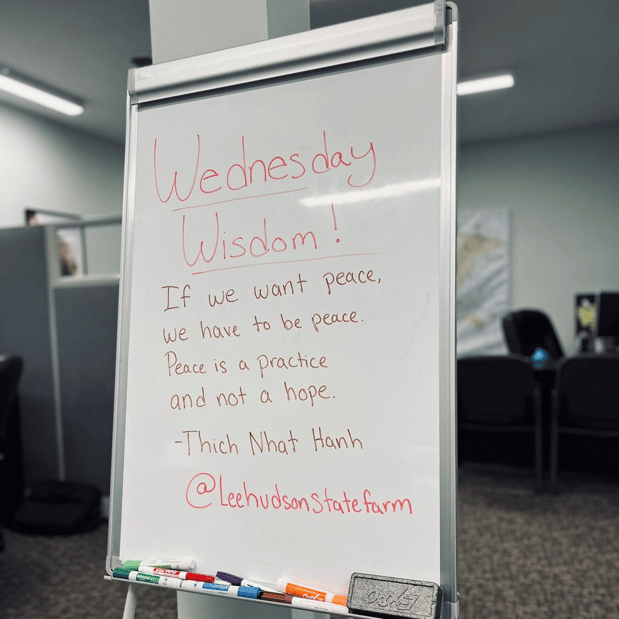 Wednesday
Wisdom!
If we want peace,
we have to be peace.
Peace is a practice
and not a hope.
-Thich Nhat Hanh
@Leehudsonstatefarm
EXPO